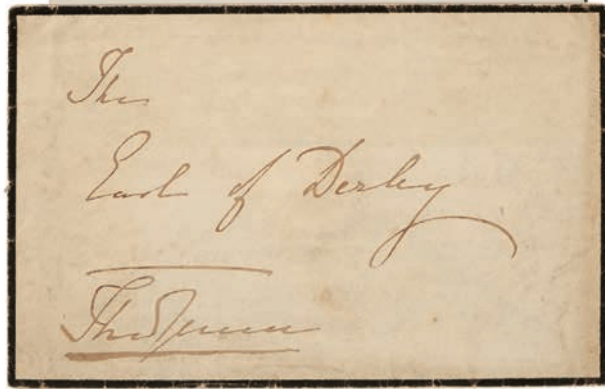 The
Earl of Derby
The Queen